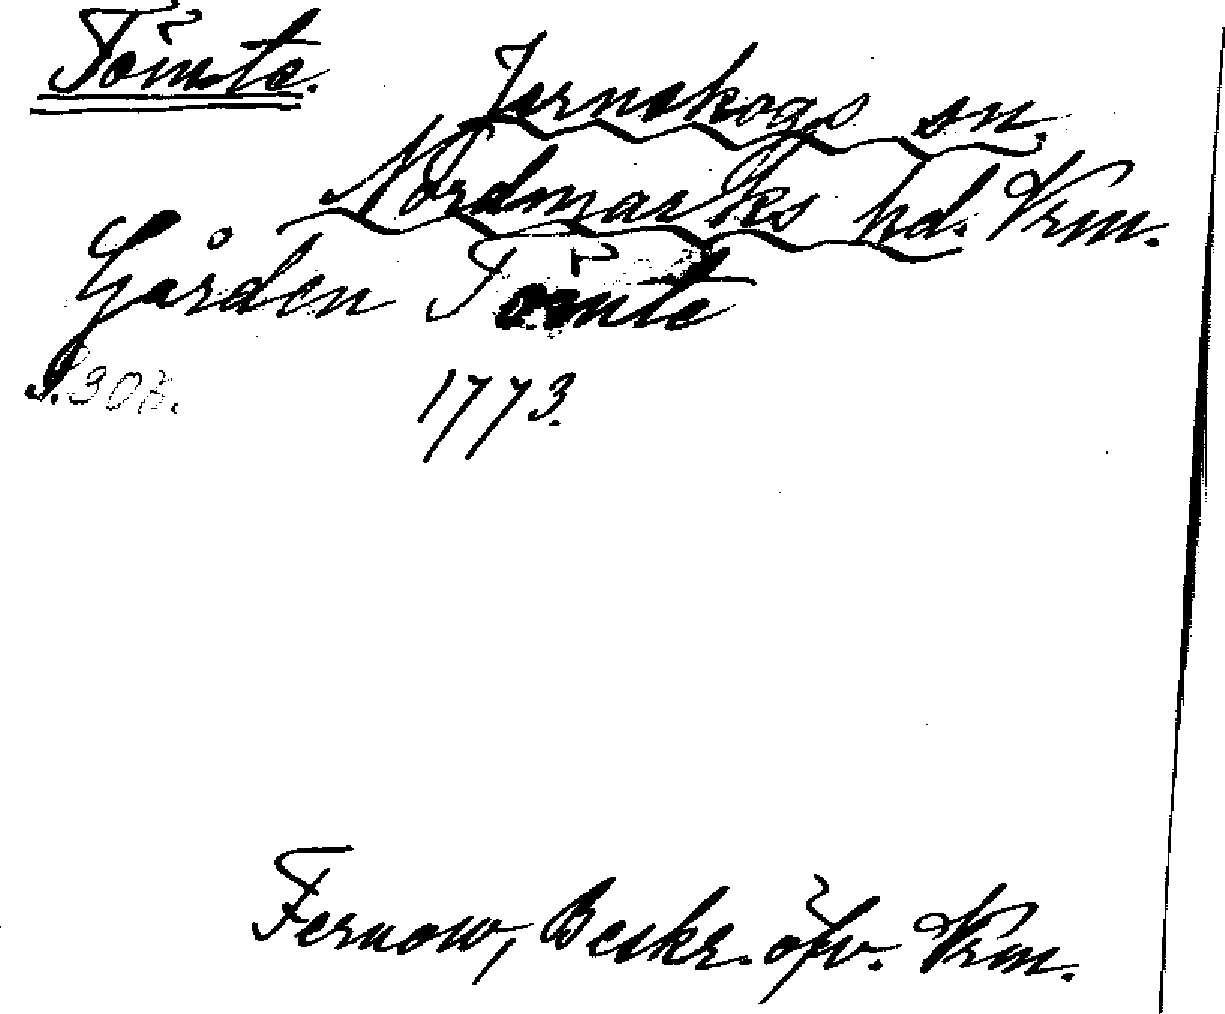 Tömte.
Jernskogs sn,
Nordmarks hd. Vrm.
Gården Tömte
S. 308. 1773.
Fernow, Beskr. öfv. Vrm.